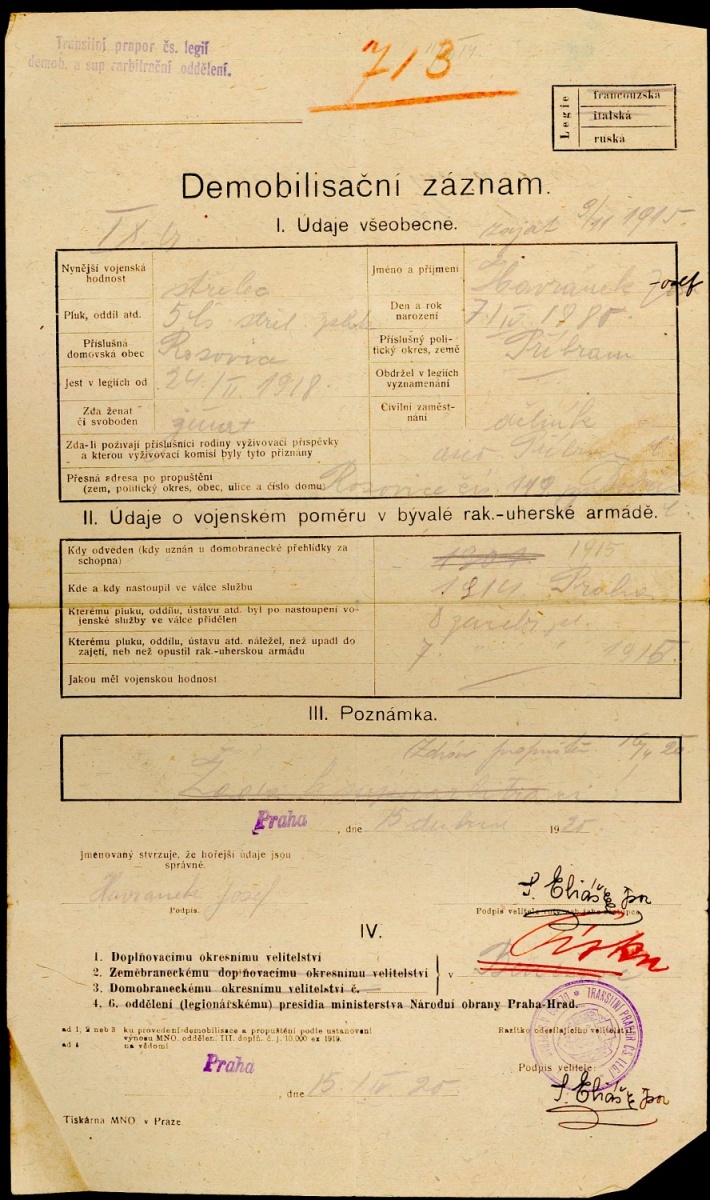 Transitní prapor čs. legií
demob. a sup rarbitrační oddělení.
713
Legie
francouzská
italská
ruská
Demobilisační záznam.
I. Údaje všeobecne.
IX. b zajat 9/11 1915.
Nynější vojenská hodnost střelec Jméno a příjmení Havranek Josef
Pluk, oddíl atd. 5 čs střel. pluk Den a rok narození 7/IV. 1880.
Příslušná domovská obec Rosovice Příslušný politický okres, země Příbram
Jest v legiích od 24./II. 1918. Obdržel v legiích vyznamenání —
Zda ženat či svoboden ženat Civilní zaměstnání dělník
Zda-li požívají příslušníci rodiny vyživovací příspěvky
a kterou vyživovací komisí byly tyto přiznány ano Příbram
Přesná adresa po propuštění
(zem, politický okres, obec, ulice a číslo domu) Rosovice čís 149
II. Údaje o vojenském poměru v bývalé rak.-uherské armádě.
Kdy odveden (kdy uznán u domobranecké přehlídky za
schopna) 1901 1915
Kde a kdy nastoupil ve válce službu 1914 Praha
Kterému pluku, oddílu, ústavu atd. byl po nastoupení vojenské
služby ve válce přidělen 8 zeměbr. pl.
Kterému pluku, oddílu, ústavu atd. náležel, než upadl do
zajetí, neb než opustil rak.-uherskou armádu 7. " " 1915.
Jakou měl vojenskou hodnost —
III. Poznámka.
Zdráv propuštěn 16/4 20.
Žádá k superarbitraci
Praha, dne 15 dubna 1920.
Jmenovaný stvrzuje, že hořejší údaje jsou
správné.
Havranek Josef
Podpis.
Š. Eliášek
Podpis velitele
IV.
1. Doplňovacímu okresnímu velitelství
2. Zeměbraneckému doplňovacímu okresnímu velitelství
3. Domobraneckému okresnímu velitelství č.
v
Písku
4. G. oddělení (legionářskému) presidia ministerstva Národní obrany Praha-Hrad.
ad 1, 2 neb 3 ku provedení demobilisace a propuštění podle ustanovení
výnosu MNO. odděleň. III. doplň. č. j. 10.000 ex 1919.
ad 4 na vědomí
Razítko odesílajícího velitelství
TRANSITNÍ PRAPOR ČS. LEGIÍ
Praha, dne 15/IV 20
Podpis velitele:
Š. Eliášek
Tiskárna MNO v Praze